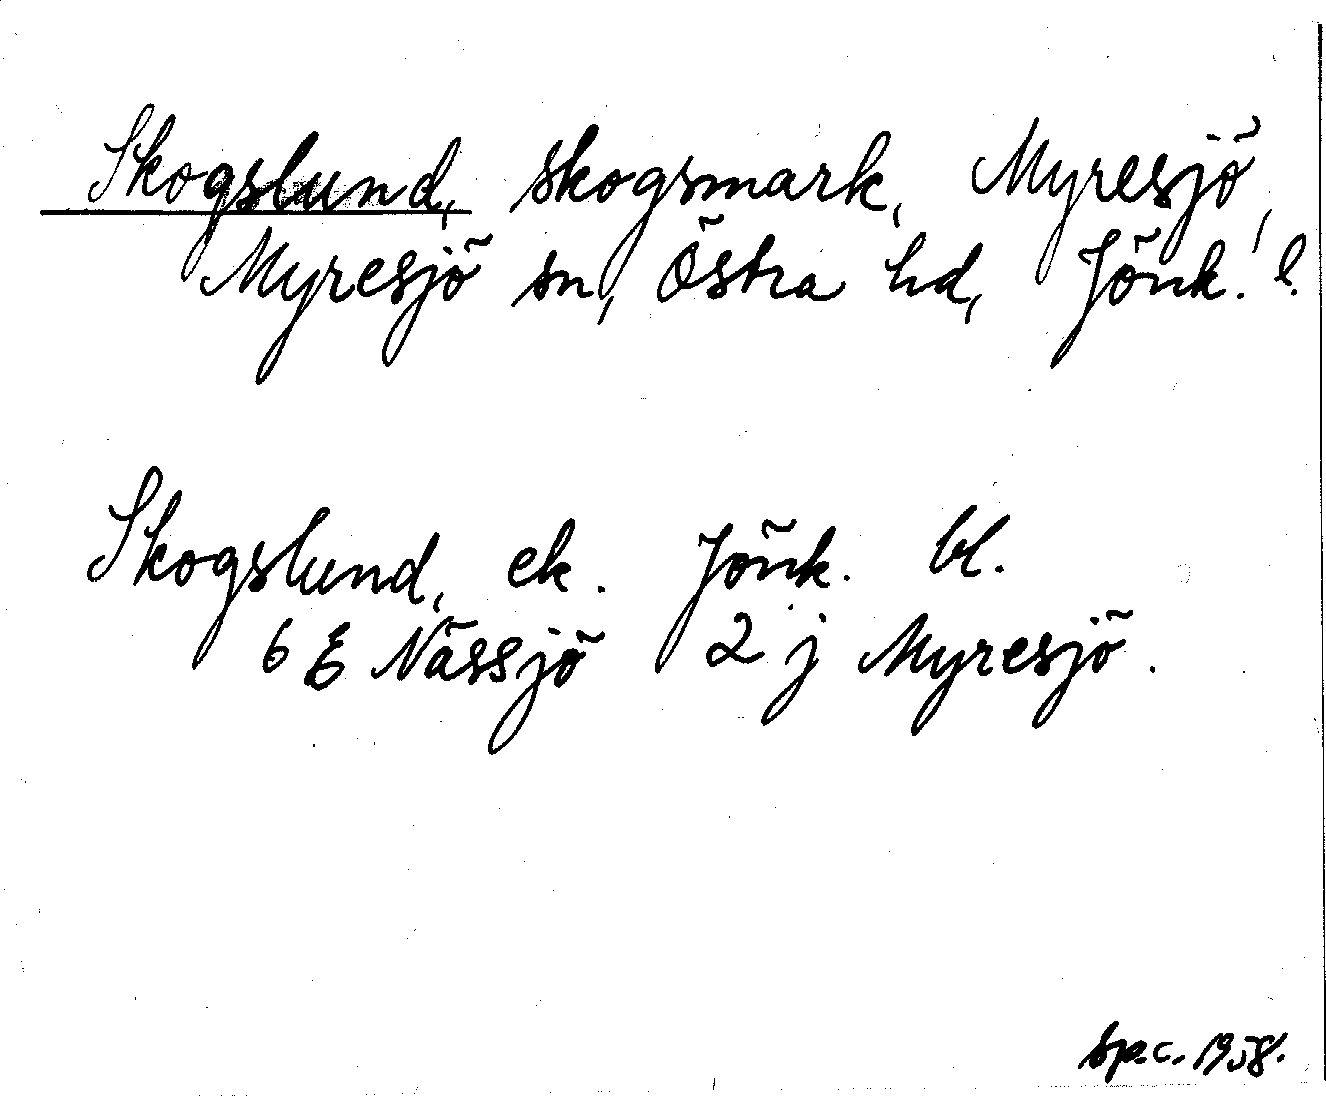 Skogslund, skogsmark, Myresjö,
Myresjö sn, Östra hd, Jönk. l.
Skogslund, ek. Jönk. bl.
6 E Nässjö 2 j Myresjö.
spec. 1958.